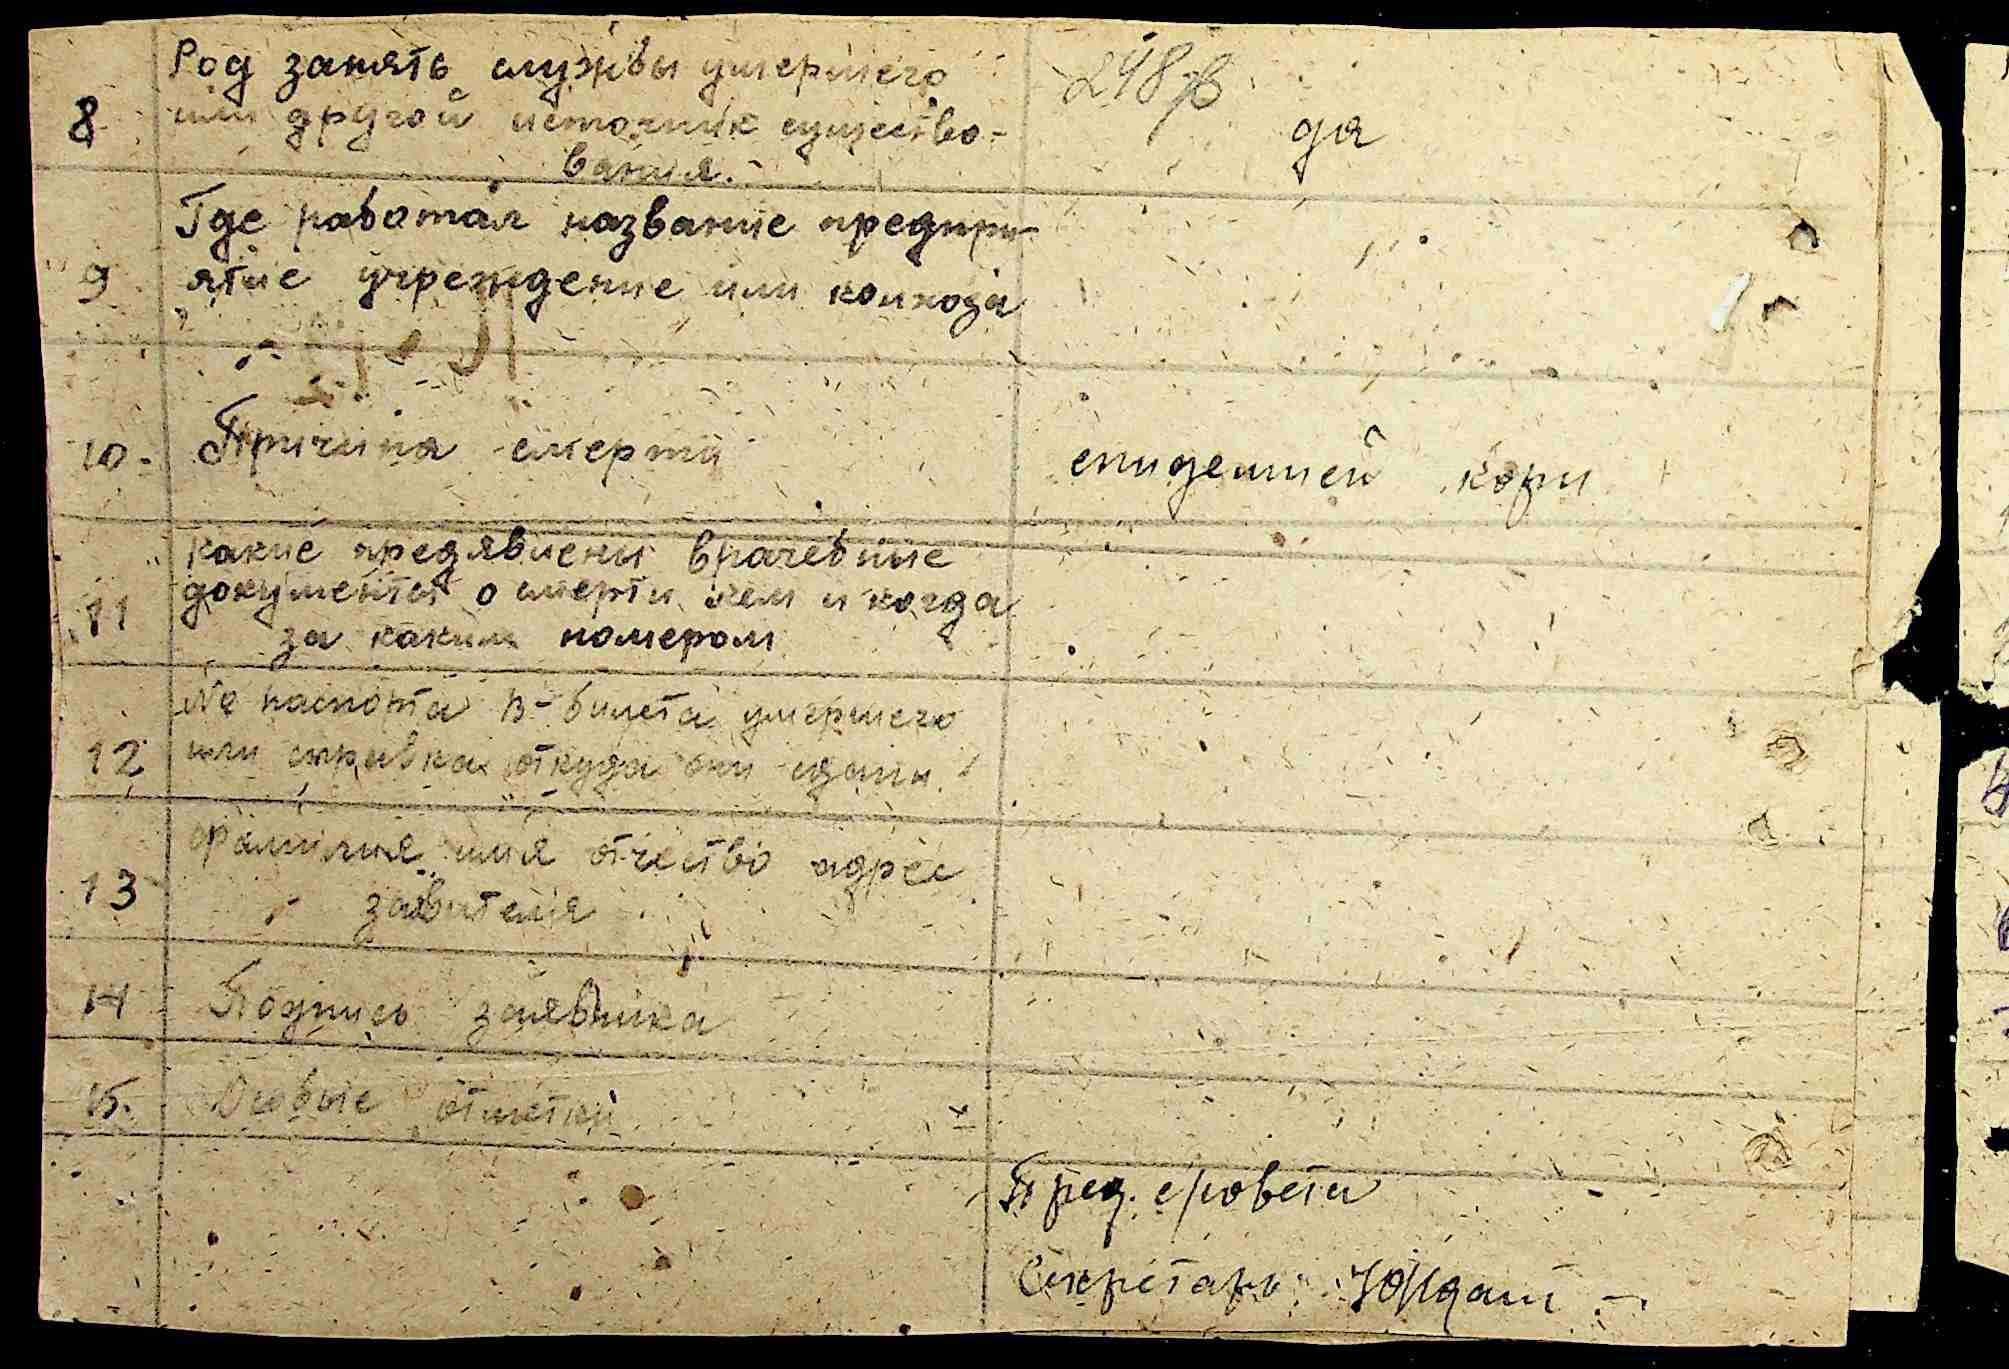 8 Род занять службы умершего
или другой источник существо-
вания.
248 об
да
9 Где работал название предпри-
ятие учреждение или колхоза
10. Причина смерти
епидемией кори
11 какие предявлены врачебные
документы о смерти кем и когда
за каким номером
12 № паспота в-билета умершего
или справка откуда они сданы
13 фамилия имя отчество адрес
заявителя
14 Подпись заявника
15. Особые отметки
Пред. с/совета
Секретарь